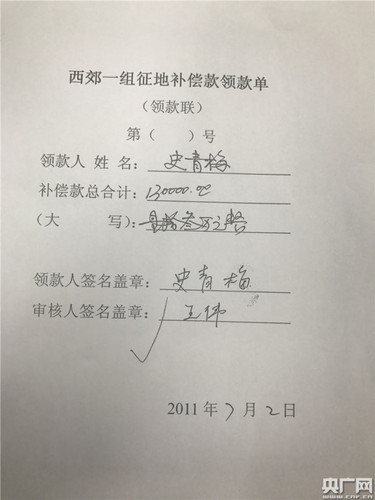 西郊一组征地补偿款领款单
(领款联)
第( )号
领款人 姓 名: 史青梅
补偿款总合计: 130000.00
(大 写): 壹拾叁万元整
领款人签名盖章: 史青梅
审核人签名盖章: 王伟
2011 年 7 月 2 日
央广网
www.cnr.cn